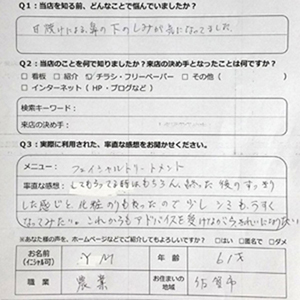 Q1：当店を知る前、どんなことで悩んでいましたか？
日焼けによる、鼻の下のしみが気になってました。
Q2：当店のことを何で知りましたか？来店の決め手となったことは何ですか？
□ 看板　□ 紹介　□ チラシ・フリーペーパー　□ その他（　　）
□ インターネット（HP・ブログなど）
検索キーワード：
来店の決め手：
Q3：実際に利用された、率直な感想をお聞かせください。
メニュー：　フェイシャルトリートメント
率直な感想：　してもらってる時はもちろん、終った後のすっきり
した感じと、化粧のりもよかったので 少しシミもうすく
なってみたい。これからもアドバイスを受けながらきれいになり
※あなた様の声を、ホームページなどでご紹介してもよろしいですか？　□はい　□匿名で　□ダメ
お名前（イニシャル可）　Y M　年齢　61才
職業　農業　お住まいの地域　佐賀市